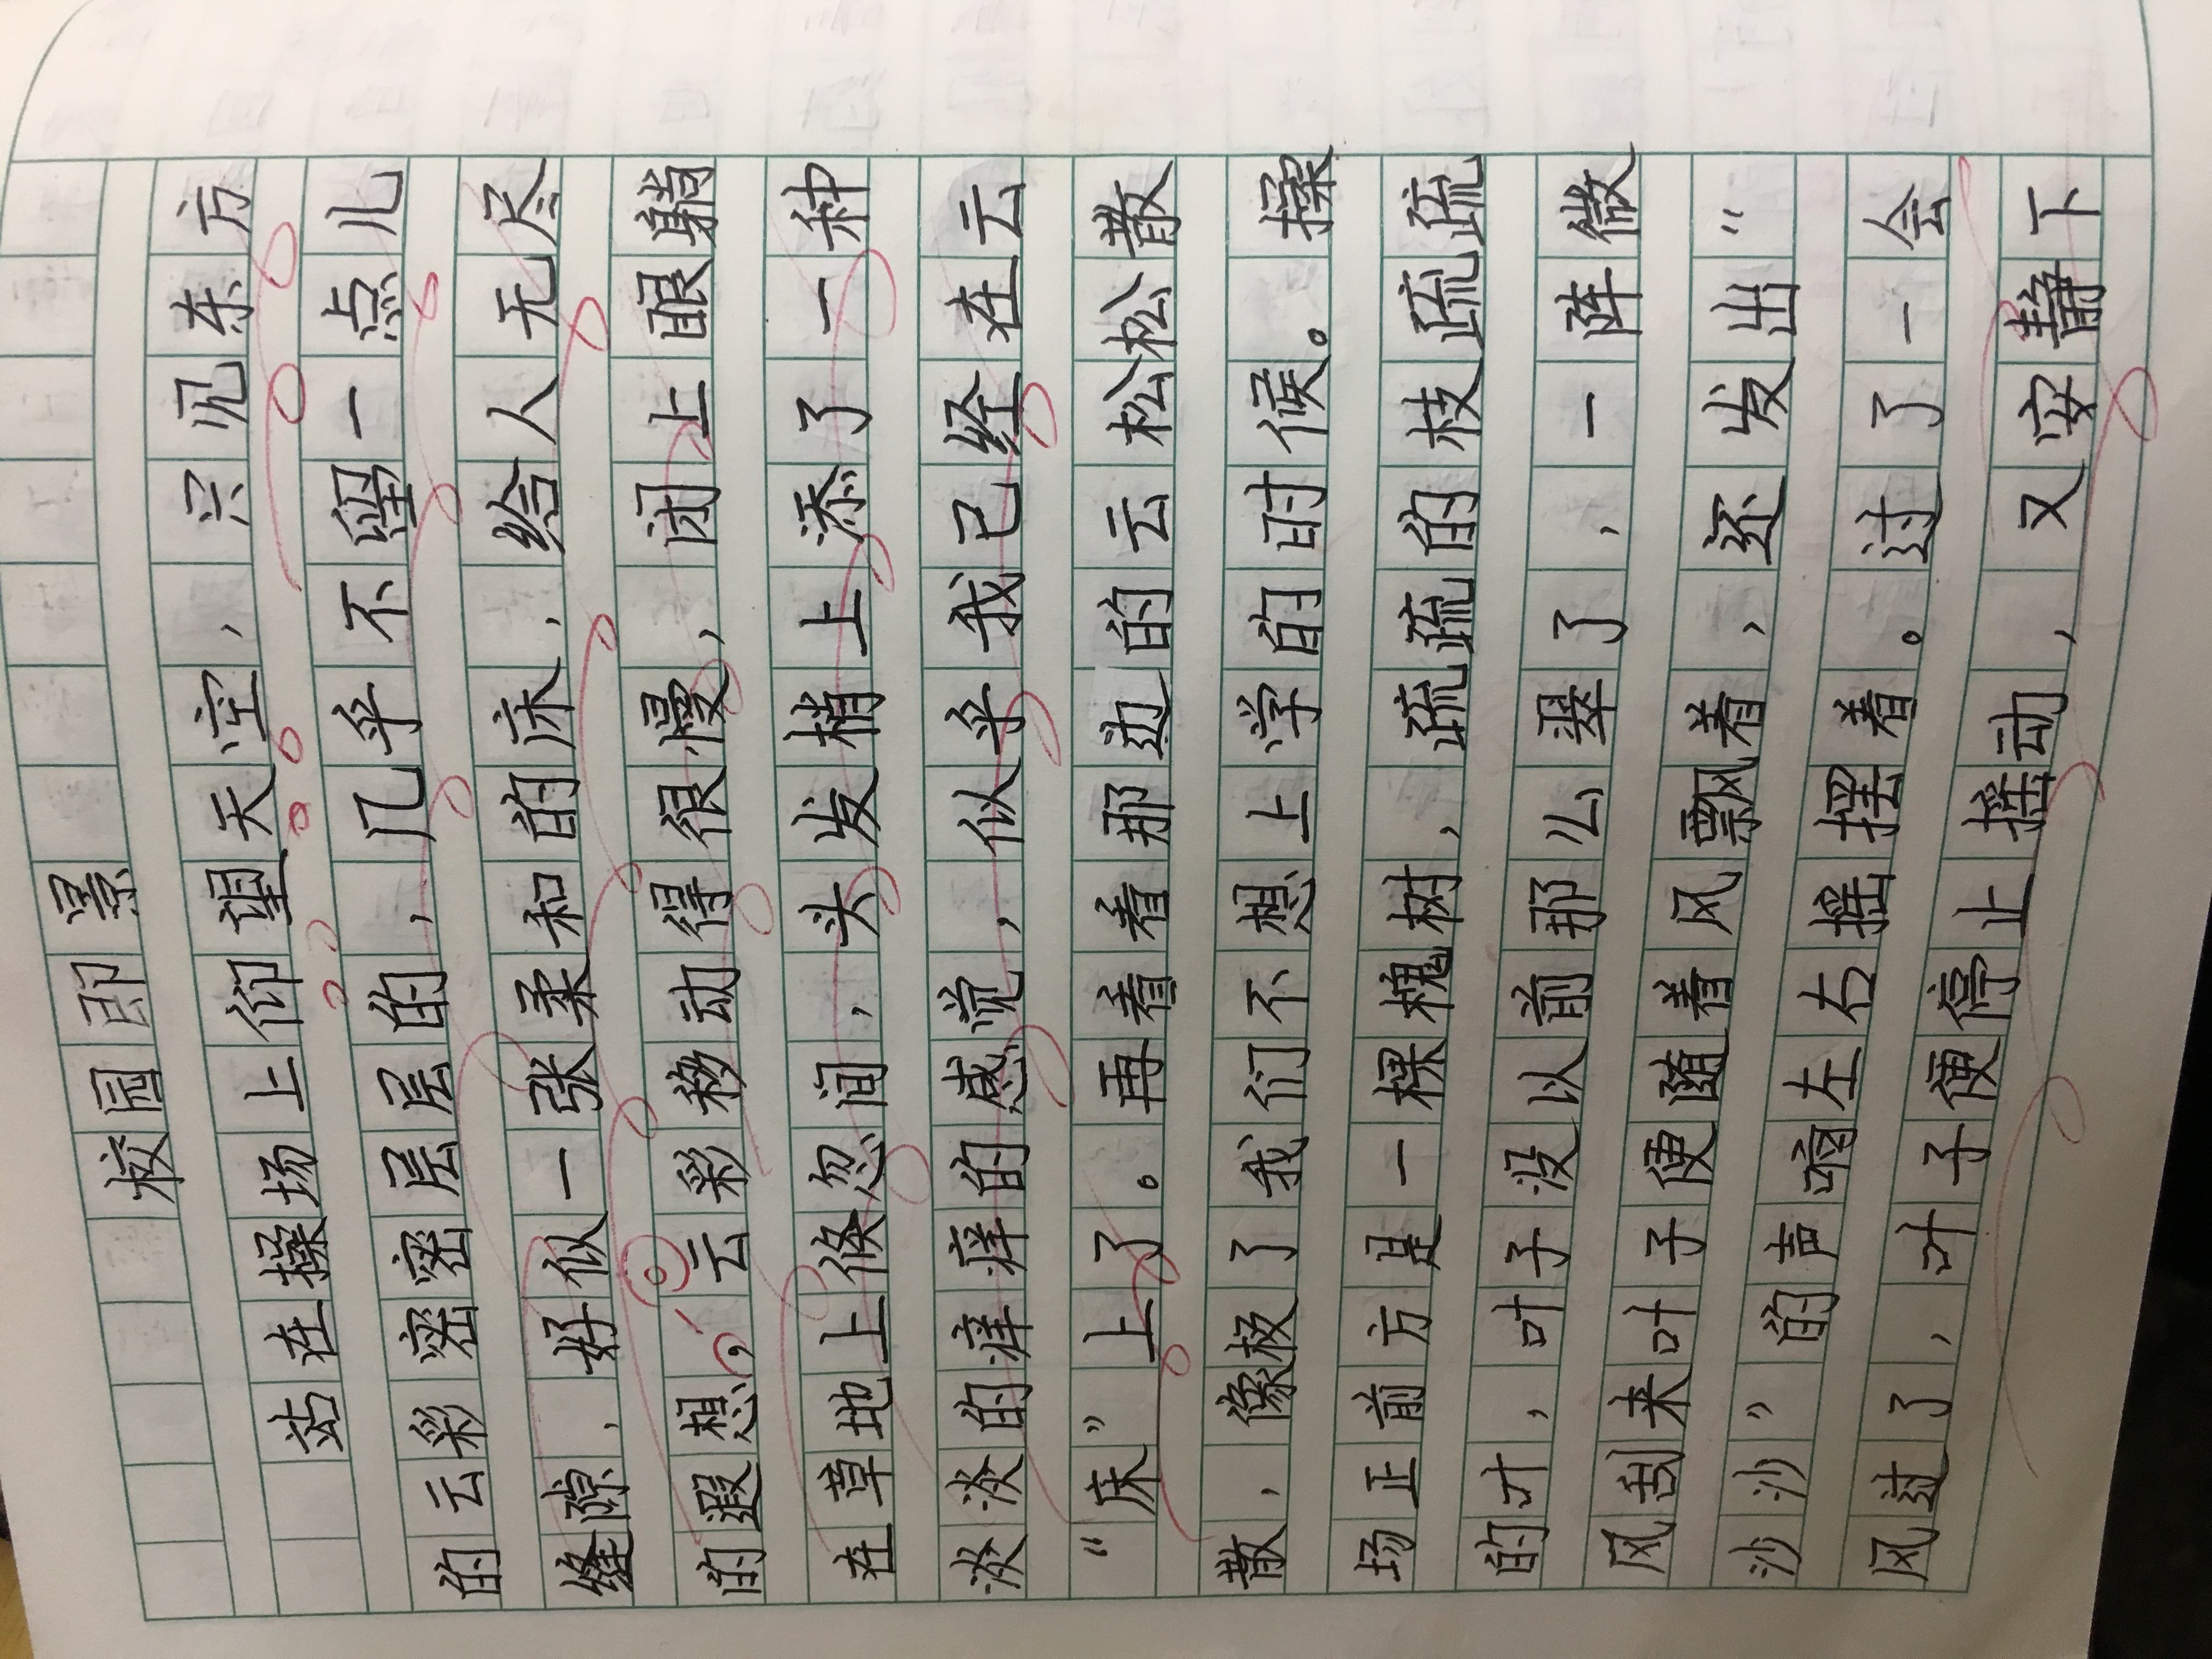 校园即景
站在操场上仰望天空，只见东方
的云彩密密层层的，几乎不留一点儿
缝隙，好似一张柔和的床，给人无尽
的遐想，云彩移动得很慢，闭上眼躺
在草地上倏忽间，头发梢上添了一种
淡淡的痒痒的感觉，似乎我已经在云
“床”上了。再看看那边的云松松散
散，像极了我们不想上学的时候。操
场正前方是一棵槐树，疏疏的枝疏疏
的叶，叶子没以前那么翠了，一阵微
风刮来叶子便随着风飘着，还发出“
沙沙”的声响左右摇摆着。过了一会
风过了，叶子便停止摇动，又安静下